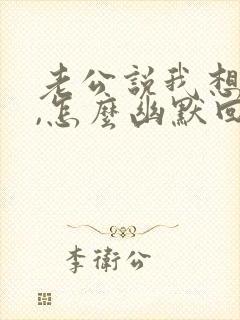 老公說我想
,怎麼幽默回
李衛公